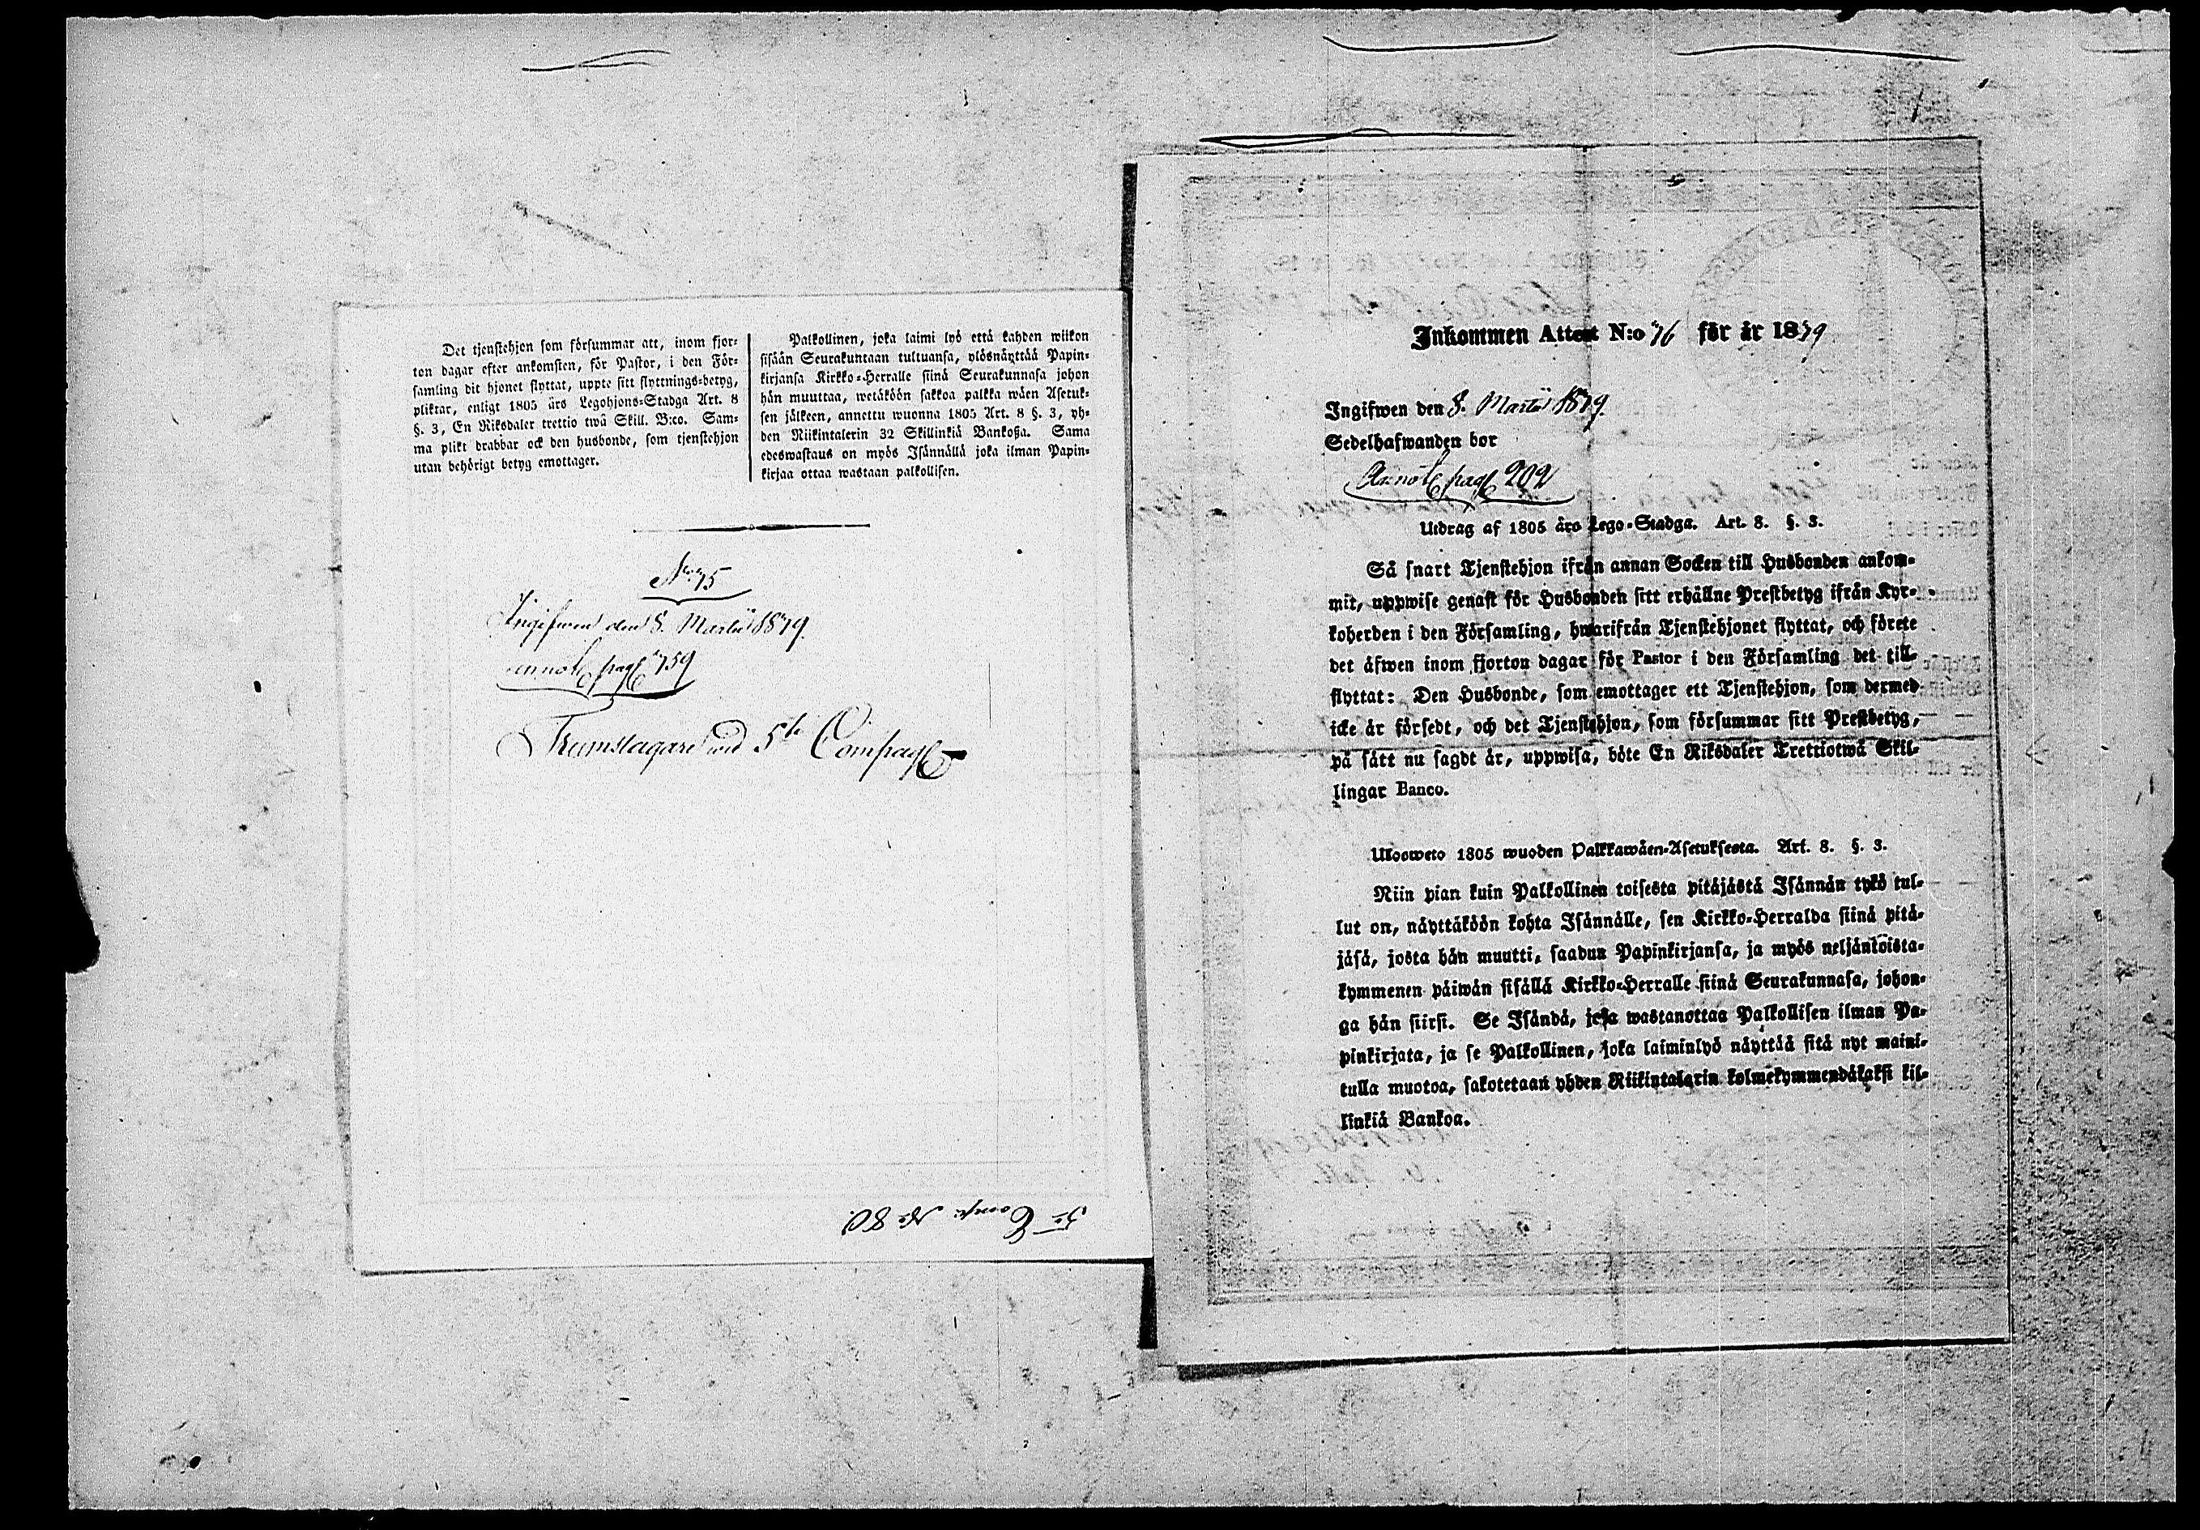 Det tjenstehjon som försummar att, inom fjor-
ton dagar efter ankomsten, för Pastor, i den För-
samling dit hjonet flyttat, uppte sitt flyttnings-betyg,
pliktar, enligt 1805 års Legohjons-Stadga Art. 8
§. 3, En Riksdaler trettio twå Skill. B:co. Sam-
ma plikt drabbar ock den husbonde, som tjenstehjon
utan behörigt betyg emottager.
Palkollinen, joka laimi lyö että kahden wiikon
sisään Seurakuntaan tultuansa, ylösnäyttää Papin-
kirjansa Kirkko-Herralle siinä Seurakunnasa johon
hän muuttaa, wetäköön sakkoa palkka wäen Asetuk-
sen jälkeen, annettu wuonna 1805 Art. 8 §. 3, yh-
den Riikintalerin 32 Skillinkiä Bankoßa. Sama
edeswastaus on myös Isännällä joka ilman Papin-
kirjaa ottaa wastaan palkollisen.
No. 75
Ingifwen den 8. Martii 1879.
annot. pag. 759
Trumslagare wid 5te Compag.
5te Comp. No 80.
Inkommen Attest N:o 76 för år 1879
Ingifwen den 8. Martii 1879.
Sedelhafwanden bor
Annot. pag. 202
Utdrag af 1805 års Lego-Stadga. Art. 8. §. 3.
Så snart Tjenstehjon ifrån annan Socken till Husbonden ankom-
mit, uppwise genast för Husbonden sitt erhållne Prestbetyg ifrån Kyr-
koherden i den Församling, hwarifrån Tjenstehjonet flyttat, och förete
det äfwen inom fjorton dagar för Pastor i den Församling det till-
flyttat: Den Husbonde, som emottager ett Tjenstehjon, som dermed
icke är försedt, och det Tjenstehjon, som försummar sitt Prestbetyg,
på sätt nu sagdt är, uppwisa, böte En Riksdaler Trettiotwå Skil-
lingar Banco.
Ulosweto 1805 wuoden Palkkawäen-Asetuksesta. Art. 8. §. 3.
Niin pian kuin Palkollinen toisesta pitäjästä Isännän tykö tul-
lut on, näyttäköön kohta Isännälle, sen Kirkko-Herralda siinä pitä-
jäsä, josta hän muutti, saadun Papinkirjansa, ja myös neljäntoista-
kymmenen päiwän sisällä Kirkko-Herralle siinä Seurakunnasa, johon-
ga hän siirsi. Se Isändä, joka wastanottaa Palkollisen ilman Pa-
pinkirjata, ja se Palkollinen, joka laiminlyö näyttää sitä nyt maini-
tulla muotoa, sakotetaan yhden Riikintalarin kolmekymmendäkaksi kil-
linkiä Bankoa.